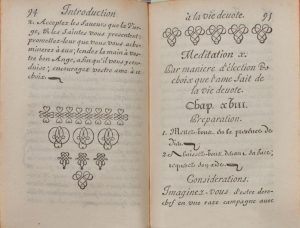 94 Introduction
2. Acceptez les faveurs que la Vier-
ge, & les Saintes vous presentent;
promettez-leur que vous vous achε-
minerez à eux; tendez la main à vos-
tre bon Ange, afin qu'il vous y con-
duise; encouragez vostre ame à ce
choix.
à la vie devote. 95
Meditation x.
Par maniere d'élection &
choix que l'ame fait de
la vie devote.
Chap. xviii.
Preparation.
1. Mettez-vous en la presence de
Dieu.
2. Abaissez-vous devant sa face;
requerez son aide.
Considerations.
Imaginez-vous d'estre dere-
chef en une raze campagne avec